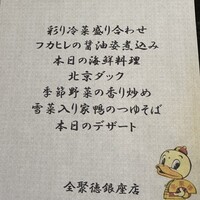 彩り冷菜盛り合わせ
フカヒレの醤油姿煮込み
本日の海鮮料理
北京ダック
季節野菜の香り炒め
雪菜入り家鴨のつゆそば
本日のデザート
全聚德銀座店